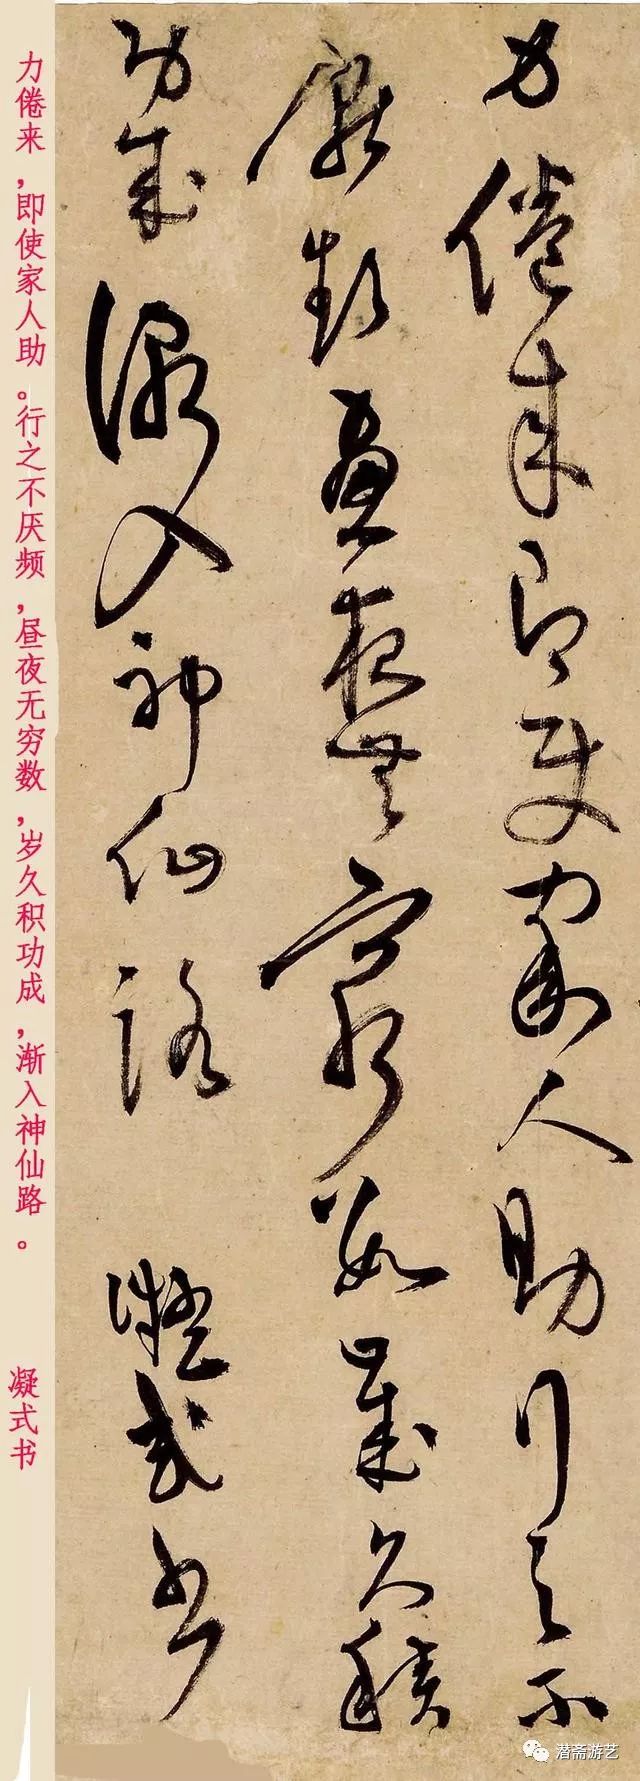 力倦来即使家人助行之不
厭頻晝夜無窮數歲久積
功成漸入神仙路 凝式書
力倦来，即使家人助。行之不厌频，昼夜无穷数，岁久积功成，渐入神仙路。 凝式书
潜斋游艺